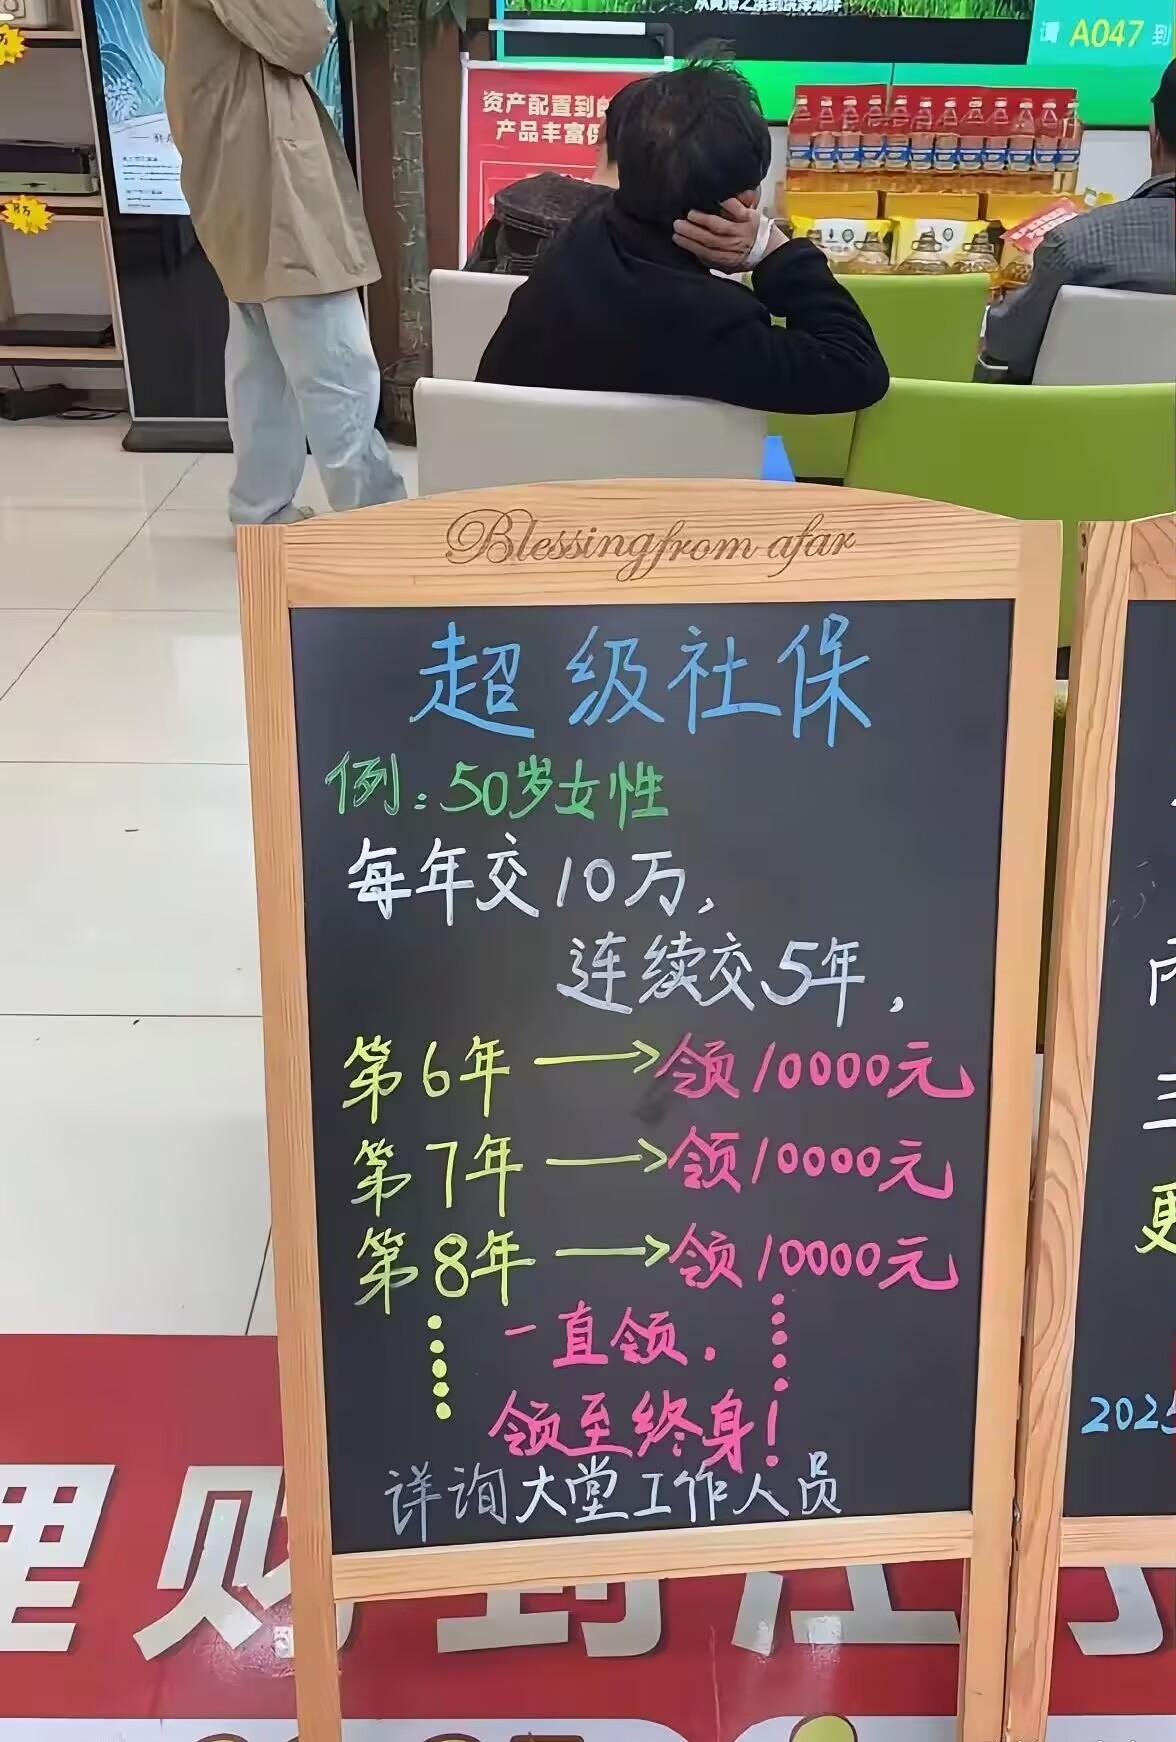 请 A047 到
资产配置到
产品丰富
8万
Blessing from afar
超级社保
例:50岁女性
每年交10万,
连续交5年,
第6年→领10000元
第7年→领10000元
第8年→领10000元
一直领.
领至终身!
详询大堂工作人员
三
更
2025
理财到江